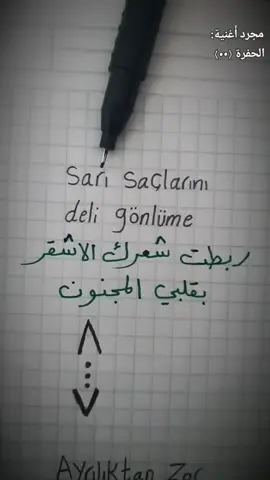 مجرد أغنية:
الحفرة (••)
Sarı saçlarını
deli gönlüme
ربطت شعرك الاشقر
بقلبي المجنون
Ayrılıktan Zor